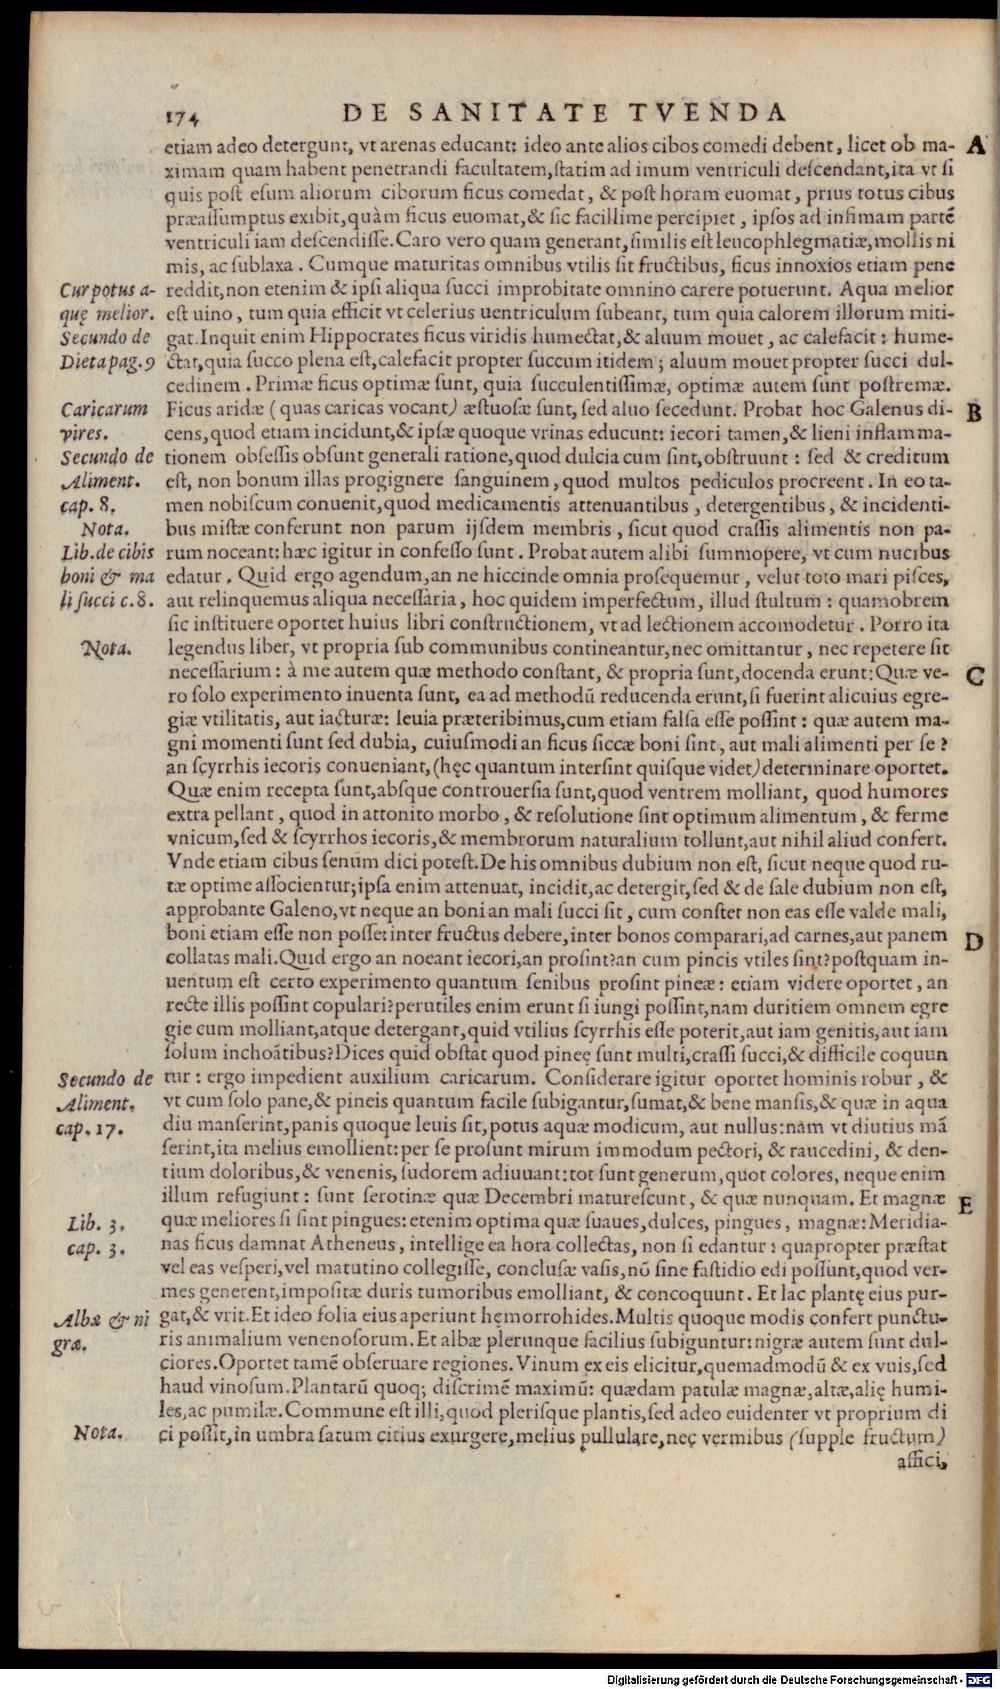 174 DE SANITATE TVENDA
etiam adeo detergunt, vt arenas educant: ideo ante alios cibos comedi debent, licet ob ma- A
ximam quam habent penetrandi facultatem, statim ad imum ventriculi descendant, ita vt si
quis post esum aliorum ciborum ficus comedat, & post horam euomat, prius totus cibus
præassumptus exibit, quàm ficus euomat, & sic facillime percipiet, ipsos ad infimam partē
ventriculi iam descendisse. Caro vero quam generant, similis est leucophlegmatiæ, mollis ni
mis, ac sublaxa. Cumque maturitas omnibus vtilis sit fructibus, ficus innoxios etiam pene
Cur potus a- reddit, non etenim & ipsi aliqua succi improbitate omnino carere potuerunt. Aqua melior
quę melior. est uino, tum quia efficit vt celerius uentriculum subeant, tum quia calorem illorum miti-
Secundo de gat. Inquit enim Hippocrates ficus viridis humectat, & aluum mouet, ac calefacit: hume-
Dieta pag. 9 ctat, quia succo plena est, calefacit propter succum itidem; aluum mouet propter succi dul-
cedinem. Primæ ficus optimæ sunt, quia succulentissimæ, optimæ autem sunt postremæ.
Caricarum Ficus aridæ (quas caricas vocant) æstuosæ sunt, sed aluo secedunt. Probat hoc Galenus di- B
vires. cens, quod etiam incidunt, & ipsæ quoque vrinas educunt: iecori tamen, & lieni inflamma-
Secundo de tionem obsessis obsunt generali ratione, quod dulcia cum sint, obstruunt: sed & creditum
Aliment. est, non bonum illas progignere sanguinem, quod multos pediculos procreent. In eo ta-
cap. 8. men nobiscum conuenit, quod medicamentis attenuantibus, detergentibus, & incidenti-
Nota. bus mistæ conferunt non parum ijsdem membris, sicut quod crassis alimentis non pa-
Lib. de cibis rum noceant: hæc igitur in confesso sunt. Probat autem alibi summopere, vt cum nucibus
boni & ma edatur. Quid ergo agendum, an ne hiccinde omnia prosequemur, velut toto mari pisces,
li succi c. 8. aut relinquemus aliqua necessaria, hoc quidem imperfectum, illud stultum: quamobrem
sic instituere oportet huius libri constructionem, vt ad lectionem accomodetur. Porro ita
Nota. legendus liber, vt propria sub communibus contineantur, nec omittantur, nec repetere sit
necessarium: à me autem quæ methodo constant, & propria sunt, docenda erunt: Quæ ve- C
ro solo experimento inuenta sunt, ea ad methodū reducenda erunt, si fuerint alicuius egre-
giæ vtilitatis, aut iacturæ: leuia præteribimus, cum etiam falsa esse possint: quæ autem ma-
gni momenti sunt sed dubia, cuiusmodi an ficus siccæ boni sint, aut mali alimenti per se?
an scyrrhis iecoris conueniant, (hęc quantum intersint quisque videt) determinare oportet.
Quæ enim recepta sunt, absque controuersia sunt, quod ventrem molliant, quod humores
extra pellant, quod in attonito morbo, & resolutione sint optimum alimentum, & ferme
vnicum, sed & scyrrhos iecoris, & membrorum naturalium tollunt, aut nihil aliud confert.
Vnde etiam cibus senum dici potest. De his omnibus dubium non est, sicut neque quod ru-
tæ optime associentur; ipsa enim attenuat, incidit, ac detergit, sed & de sale dubium non est,
approbante Galeno, vt neque an boni an mali succi sit, cum constet non eas esse valde mali,
boni etiam esse non posse: inter fructus debere, inter bonos comparari, ad carnes, aut panem D
collatas mali. Quid ergo an noeant iecori, an prosint? an cum pincis vtiles sint? postquam in-
uentum est certo experimento quantum senibus prosint pineæ: etiam videre oportet, an
recte illis possint copulari? perutiles enim erunt si iungi possint, nam duritiem omnem egre
gie cum molliant, atque detergant, quid vtilius scyrrhis esse poterit, aut iam genitis, aut iam
solum inchoātibus? Dices quid obstāt quod pineę sunt multi, crassi succi, & difficile coquun
Secundo de tur: ergo impedient auxilium caricarum. Considerare igitur oportet hominis robur, &
Aliment. vt cum solo pane, & pineis quantum facile subigantur, sumat, & bene mansis, & quæ in aqua
cap. 17. diu manserint, panis quoque leuis sit, potus aquæ modicum, aut nullus: nam vt diutius mā
serint, ita melius emollient: per se prosunt mirum immodum pectori, & raucedini, & den-
tium doloribus, & venenis, sudorem adiuuant: tot sunt generum, quot colores, neque enim
illum refugiunt: sunt serotinæ quæ Decembri maturescunt, & quæ nunquam. Et magnæ E
Lib. 3. quæ meliores si sint pingues: etenim optima quæ suaues, dulces, pingues, magnæ: Meridia-
cap. 3. nas ficus damnat Atheneus, intellige ea hora collectas, non si edantur: quapropter præstat
vel eas vesperi, vel matutino collegisse, conclusæ vasis, nō sine fastidio edi possunt, quod ver-
mes generent, impositæ duris tumoribus emolliant, & concoquunt. Et lac plantę eius pur-
Albæ & ni gat, & vrit. Et ideo folia eius aperiunt hęmorrohides. Multis quoque modis confert punctu-
græ. ris animalium venenosorum. Et albæ plerunque facilius subiguntur: nigræ autem sunt dul-
ciores. Oportet tamē obseruare regiones. Vinum ex eis elicitur, quemadmodū & ex vuis, sed
haud vinosum. Plantarū quoq; discrimē maximū: quædam patulæ magnæ, altæ, alię humi-
les, ac pumilæ. Commune est illi, quod plerisque plantis, sed adeo euidenter vt proprium di
Nota. ci possit, in umbra satum citius exurgere, melius pullulare, nec vermibus (supple fructum)
affici,
Digitalisierung gefördert durch die Deutsche Forschungsgemeinschaft - DFG